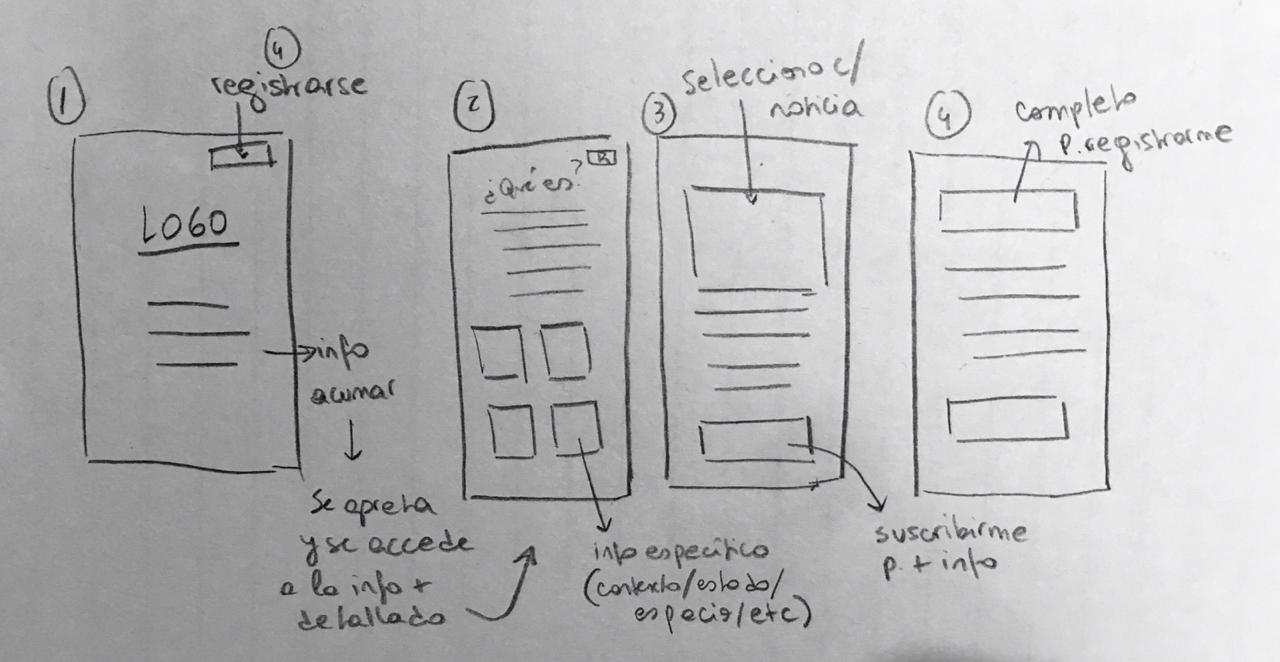 1
4
registrarse
LOGO
info
acumar
Se apreta
y se accede
a la info +
detallado
2
¿Qué es?
R
info específico
(contexto/estado/
espacio/etc)
3
Selecciono c/
noticia
suscribirme
p. + info
4
completo
p. registrarme